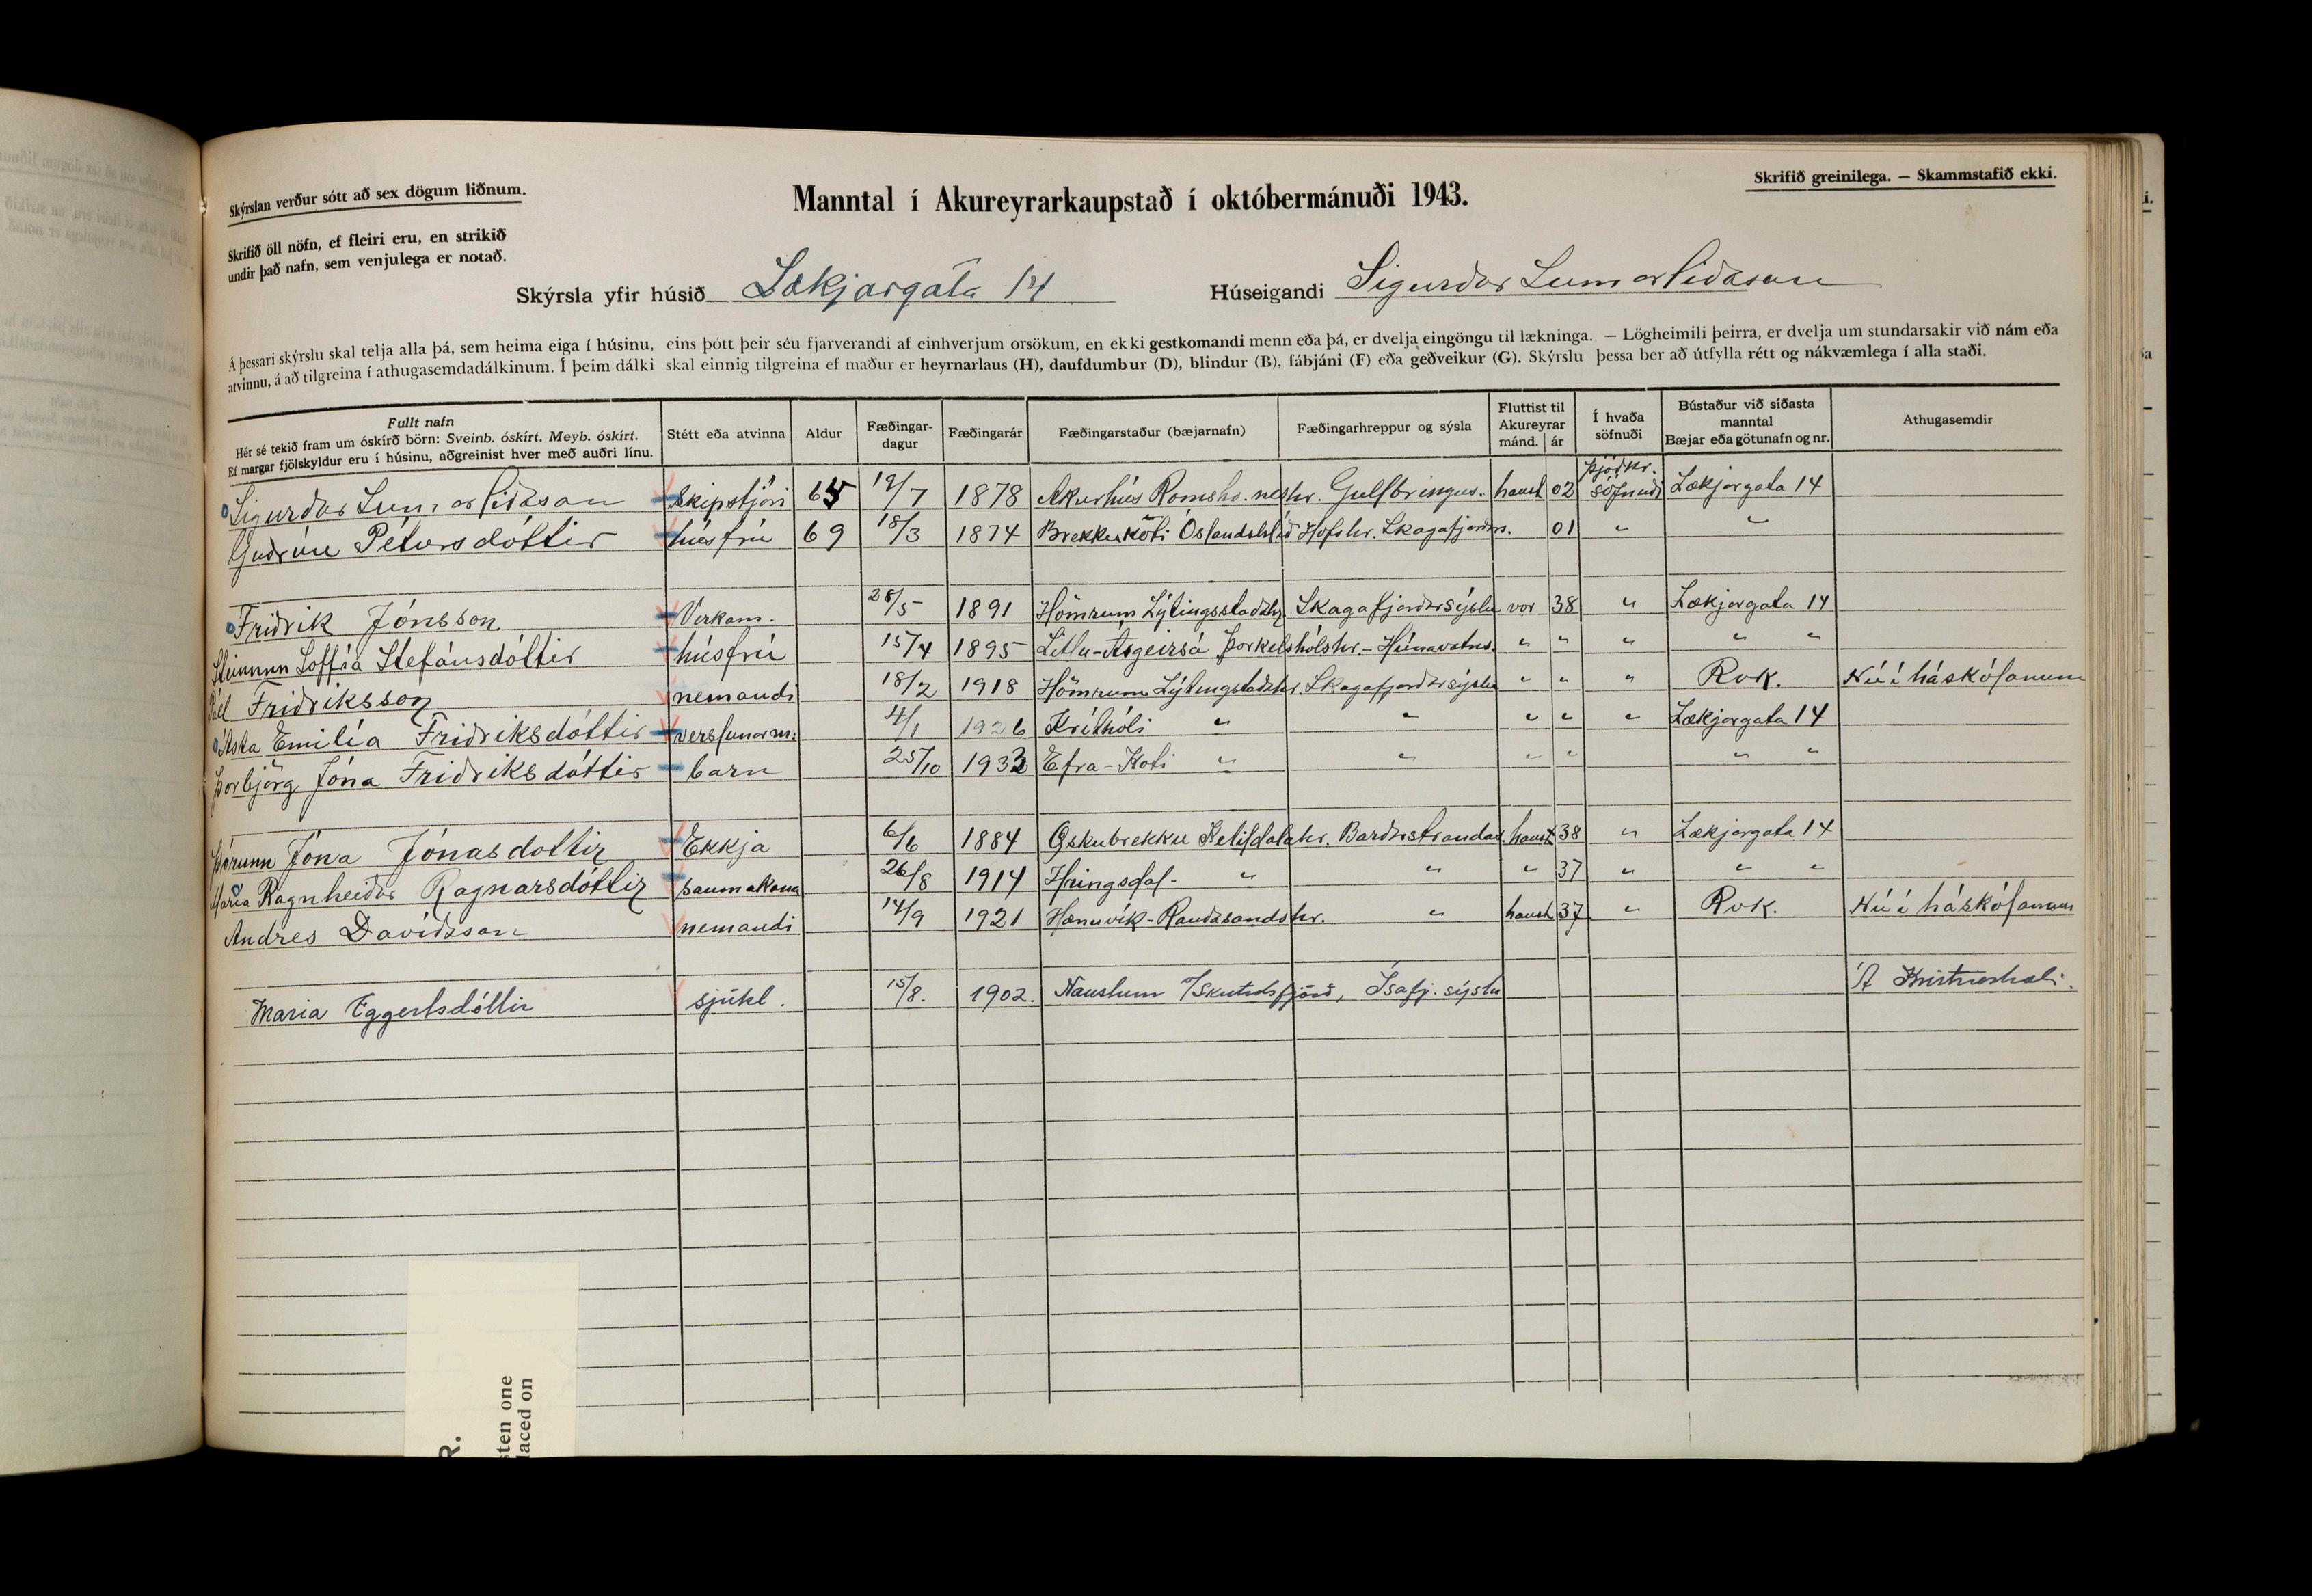 Skýrslan verður sótt að sex dögum liðnum.
Manntal í Akureyrarkaupstað í októbermánuði 1943.
Skrifið greinilega. — Skammstafið ekki.
Skrifið öll nöfn, ef fleiri eru, en strikið
undir það nafn, sem venjulega er notað.
Skýrsla yfir húsið Lækjargata 14 Húseigandi Sigurður Sumarliðason
Á þessari skýrslu skal telja alla þá, sem heima eiga í húsinu, eins þótt þeir séu fjarverandi af einhverjum orsökum, en ekki gestkomandi menn eða þá, er dvelja eingöngu til lækninga. — Lögheimili þeirra, er dvelja um stundarsakir við nám eða
atvinnu, á að tilgreina í athugasemdadálkinum. Í þeim dálki skal einnig tilgreina ef maður er heyrnarlaus (H), daufdumbur (D), blindur (B), fábjáni (F) eða geðveikur (G). Skýrslu þessa ber að útfylla rétt og nákvæmlega í alla staði.
Fullt nafn
Hér sé tekið fram um óskírð börn: Sveinb. óskírt. Meyb. óskírt.
Ef margar fjölskyldur eru í húsinu, aðgreinist hver með auðri línu.
Stétt eða atvinna
Aldur
Fæðingar-
dagur
Fæðingarár
Fæðingarstaður (bæjarnafn)
Fæðingarhreppur og sýsla
Fluttist til
Akureyrar
mánd. ár
Í hvaða
söfnuði
Bústaður við síðasta
manntal
Bæjar eða götunafn og nr.
Athugasemdir
Sigurður Sumarliðason skipstjóri 65 19/7 1878 Akurhús Romshv.neshr. Gullbringus. haust 02 Þjóðkr. söfnuði Lækjargata 14
Guðrún Pétursdóttir húsfrú 69 18/3 1874 Brekkukoti Óslandshlíð Hofshr. Skagafjarðars. 01 " "
Friðrik Jónsson Verkam. 28/5 1891 Hömrum Lýtingsstaðahr. Skagafjarðarsýslu vor 38 " Lækjargata 14
Steinunn Soffía Stefánsdóttir húsfrú 15/4 1895 Litlu-Ásgeirsá Þorkelshólshr. - Húnavatns. " " " " "
Páll Friðriksson nemandi 18/2 1918 Hömrum Lýtingsstaðahr. Skagafjarðarsýslu " " " Rvk. Nú í háskólanum
Ásta Emilía Friðriksdóttir verslunarm. 4/1 1926 Krithóli " " " " " Lækjargata 14
Þorbjörg Jóna Friðriksdóttir barn 25/10 1933 Efra-Koti " " " " " "
Þórunn Jóna Jónasdottir Ekkja 6/6 1884 Öskubrekku Ketildalahr. Barðastrandas. haust 38 " Lækjargata 14
María Ragnheiður Ragnarsdóttir saumakona 26/8 1914 Hringsdal - " " " 37 " " "
Andres Davíðsson nemandi 14/9 1921 Hænuvík - Rauðasandshr. " haust 37 " Rvk. Nú í háskólanum
Maria Eggertsdóttir sjúkl. 15/8. 1902. Naustum v/Skutulsfjörð, Ísafj. sýslu Á Kristneshæli.
R.
sten one
laced on